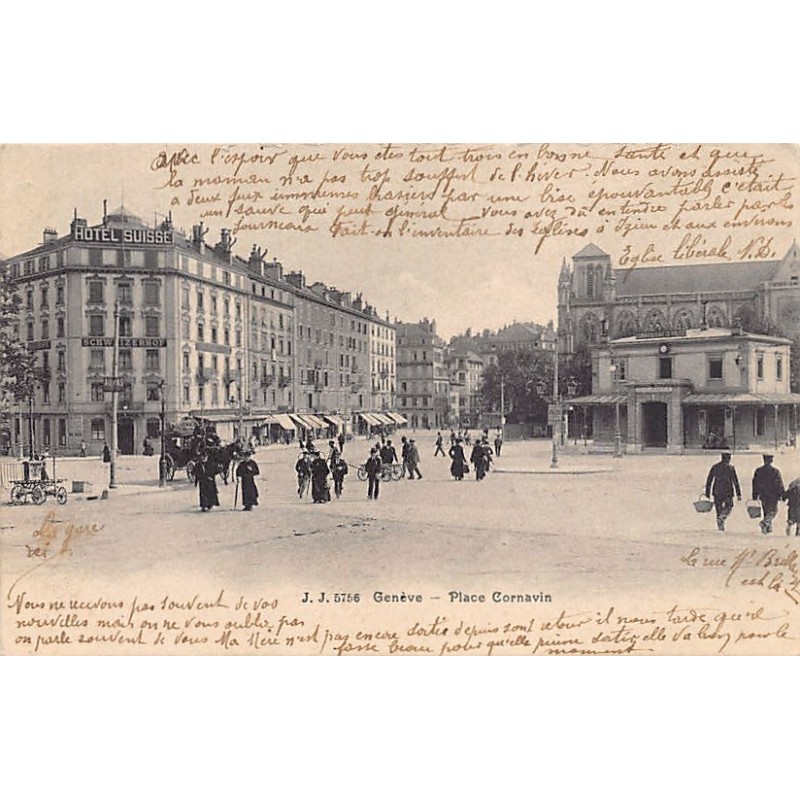 avec l'espoir que vous êtes tout trois en bonne santé et que
la maman n'a pas trop souffert de l'hiver. Nous avons assisté
à deux feux immenses brasiers par une bise épouvantable c'était
un sauve qui peut général. Vous avez dû entendre parler par les
journeaux fait en l'inventaire des Eglises à et aux environs
Eglise libérale N.D.
HOTEL SUISSE
SCHWEIZERHOF
La gare
est là
J. J. 5756 Genève — Place Cornavin
Nous ne recevons pas souvent de vos
nouvelles mais on ne vous oublie pas
on parle souvent de vous Ma Mère n'est pas encore sortie depuis son retour il nous tarde qu'il
fasse beau pour qu'elle puisse sortir elle va bien pour le
moment
La rue